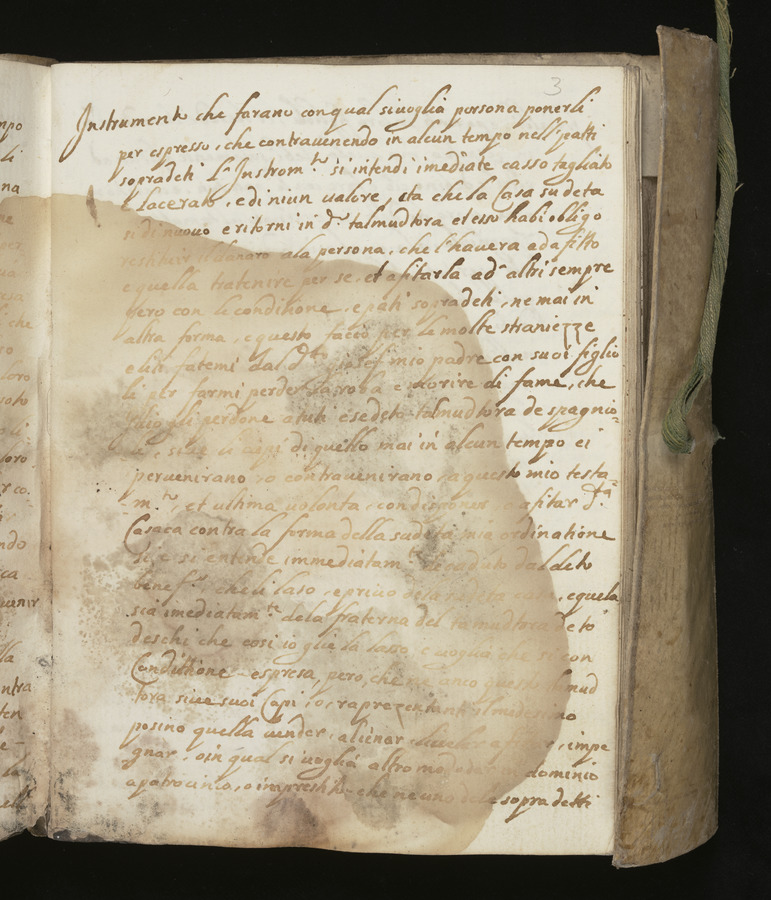 3
Instrumento che farano con qual si uoglia persona ponerli
per espresso, che contrauenendo in alcun tempo nell patti
sopradeti L'Instrom.to si intendi imediate casso tagliato
e lacerato, e di niun ualore, eta che la Casa sudeta
si di nuouo e ritorni in d.a talmudtora et esso habi obligo
restituir il danaro ala persona, che l'hauera ad afitto
e quella tratenire per se, et afitarla ad altri sempre
pero con le conditione, e pati sopradeti, ne mai in
altra forma, e questo faccio per le molte straniezze
e liti fatemi dal d.to mio padre con suoi figlio
li per farmi perder la roba e morire di fame, che
Idio gli perdone a tuti e se deto talmudtora de spagnio=
li e di quello mai in alcun tempo ei
peruenirano, o contrauenirano, a questo mio testa=
m.to, et ultima uolonta, con o afitar d.ta
Casaca contra la forma della sudeta mia ordinatione
si entende immediatam.te decaduto dal deto
benef.o che li laso, e priuo dela sudeta casa, e quela
sia imediatam.te dela fraterna del talmudtora deto
deschi che cosi io glie la lasso e uoglia che si con
Conditione espresa, pero, che ne anco questo talmud
tora siue suoi Capi, o, raprezentanti il medesimo
posino quella uender, alienar, liuelar, impe
gnar, o in qual si uoglia altro modo dominio
a patrocinio, o imprestito che ne uno dele sopra detti